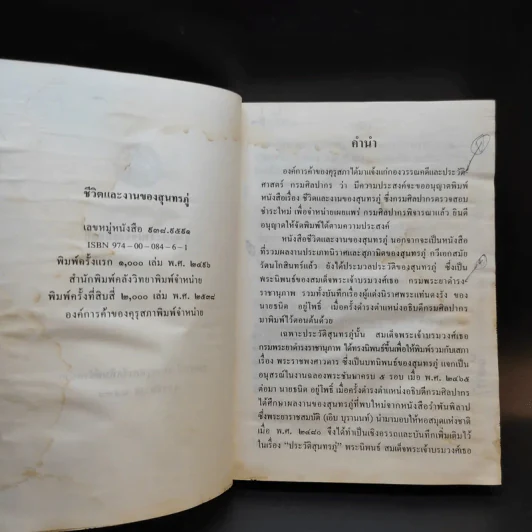 ชีวิตและงานของสุนทรภู่
เลขหมู่หนังสือ ๙๓๘.๙๕๙๑
ISBN 974-00-084-6-1
พิมพ์ครั้งแรก ๑,๐๐๐ เล่ม พ.ศ. ๒๔๙๖
สำนักพิมพ์คลังวิทยาพิมพ์จำหน่าย
พิมพ์ครั้งที่สิบสี่ ๒,๐๐๐ เล่ม พ.ศ. ๒๕๓๔
องค์การค้าของคุรุสภาพิมพ์จำหน่าย
คำนำ
องค์การค้าของคุรุสภาได้มาแจ้งแก่กองวรรณคดีและประวัติ
ศาสตร์ กรมศิลปากร ว่า มีความประสงค์จะขออนุญาตพิมพ์
หนังสือเรื่อง ชีวิตและงานของสุนทรภู่ ซึ่งกรมศิลปากรตรวจสอบ
ชำระใหม่ เพื่อจำหน่ายเผยแพร่ กรมศิลปากรพิจารณาแล้ว ยินดี
อนุญาตให้จัดพิมพ์ได้ตามความประสงค์
หนังสือชีวิตและงานของสุนทรภู่ นอกจากจะเป็นหนังสือ
ที่รวมผลงานประเภทนิราศและสุภาษิตของสุนทรภู่ กวีเอกสมัย
รัตนโกสินทร์แล้ว ยังได้ประมวลประวัติของสุนทรภู่ ซึ่งเป็น
พระนิพนธ์ของสมเด็จพระเจ้าบรมวงศ์เธอ กรมพระยาดำรง
ราชานุภาพ รวมทั้งบันทึกเรื่องผู้แต่งนิราศพระแท่นดงรัง ของ
นายธนิต อยู่โพธิ์ เมื่อครั้งดำรงตำแหน่งอธิบดีกรมศิลปากร
มาพิมพ์ไว้ตอนต้นด้วย
เฉพาะประวัติสุนทรภู่นั้น สมเด็จพระเจ้าบรมวงศ์เธอ
กรมพระยาดำรงราชานุภาพ ได้ทรงนิพนธ์ขึ้นเพื่อให้พิมพ์รวมกับเสภา
เรื่อง พระราชพงศาวดาร ซึ่งเป็นบทนิพนธ์ของสุนทรภู่ แจกเป็น
อนุสรณ์ในงานฉลองพระชันษาครบ ๕ รอบ เมื่อ พ.ศ. ๒๔๖๕
ต่อมา นายธนิต อยู่โพธิ์ เมื่อครั้งดำรงตำแหน่งอธิบดีกรมศิลปากร
ได้ศึกษาผลงานของสุนทรภู่ที่พบใหม่จากหนังสือรำพันพิลาป
ซึ่งพระยาราชสมบัติ (เอิบ บุรานนท์) นำมามอบให้หอสมุดแห่งชาติ
เมื่อ พ.ศ. ๒๔๘๐ จึงได้ทำเป็นเชิงอรรถและบันทึกเพิ่มเติมไว้
ในเรื่อง "ประวัติสุนทรภู่" พระนิพนธ์ สมเด็จพระเจ้าบรมวงศ์เธอ